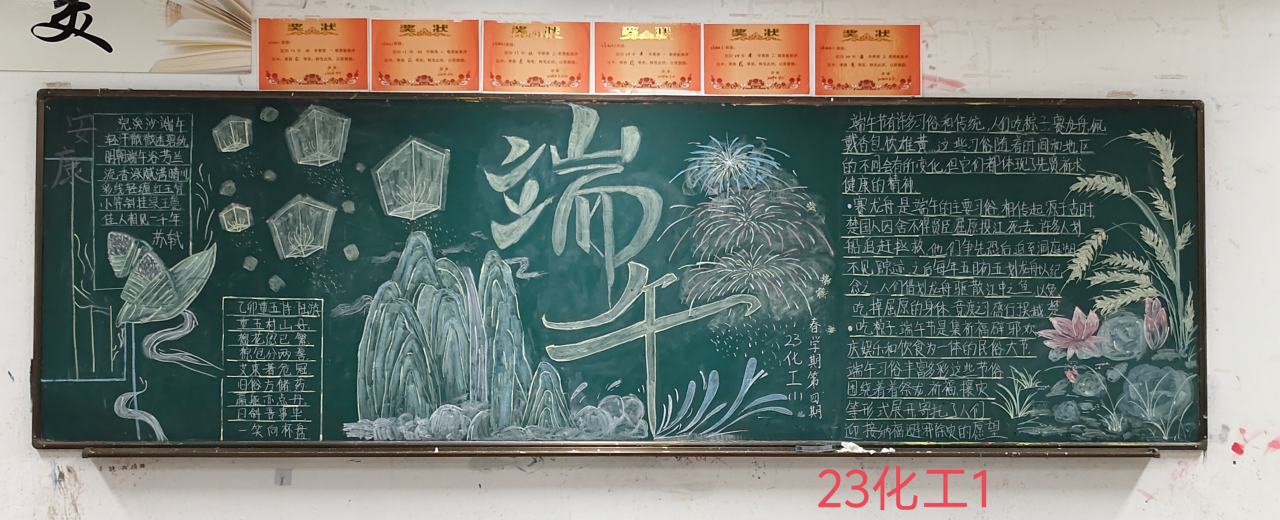 美
奖状
奖状
奖状
奖状
奖状
奖状
安康
浣溪沙端午
轻汗微微透碧纨
明朝端午浴芳兰
流香涨腻满晴川
彩线轻缠红玉臂
小符斜挂绿云鬟
佳人相见一千年
苏轼
乙卯重五诗 陆游
重五村山好
榴花忽已繁
粽包分两髻
艾束著危冠
旧俗方储药
羸躯亦点丹
日斜吾事毕
一笑向杯盘
端午
春学期第四期
23化工(1)
端午节有许多习俗和传统,人们吃粽子、赛龙舟、佩
戴香包、饮雄黄,这些习俗随着时间和地区
的不同会有所变化,但它们都体现了先贤祈求
健康的精神
•赛龙舟是端午的主要习俗,相传起源于古时
楚国人因舍不得贤臣屈原投江死去,许多人划
船追赶拯救,他们争先恐后,追至洞庭湖
不见踪迹,之后每年五月初五划龙舟以纪
念之,人们借划龙舟驱散江中之鱼,以免
吃掉屈原的身体,竞渡习
•吃粽子,端午节是集祈福辟邪欢
庆娱乐和饮食为一体的民俗大节
端午习俗丰富多彩这些节俗
围绕着祭龙祈福攘灾
等形式展开寄托了人们
迎接纳福避邪除灾的愿望
23化工1